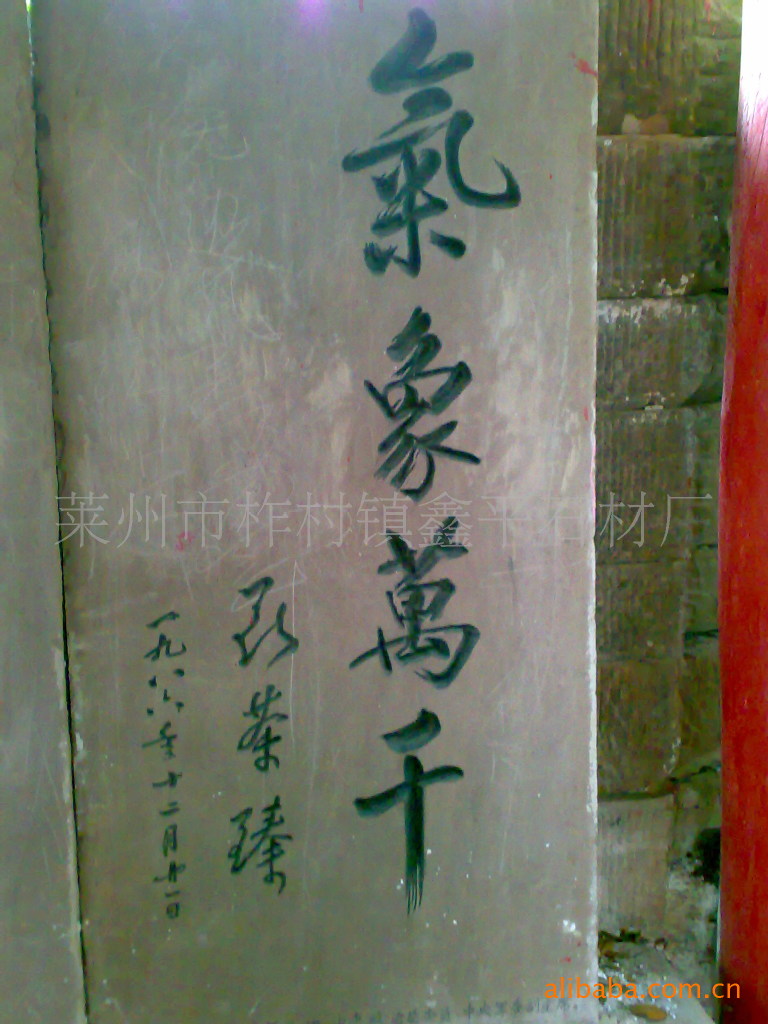 氣象萬千
聂荣臻
一九八六年十二月廿一日
莱州市柞村镇鑫平石材厂
alibaba.com.cn